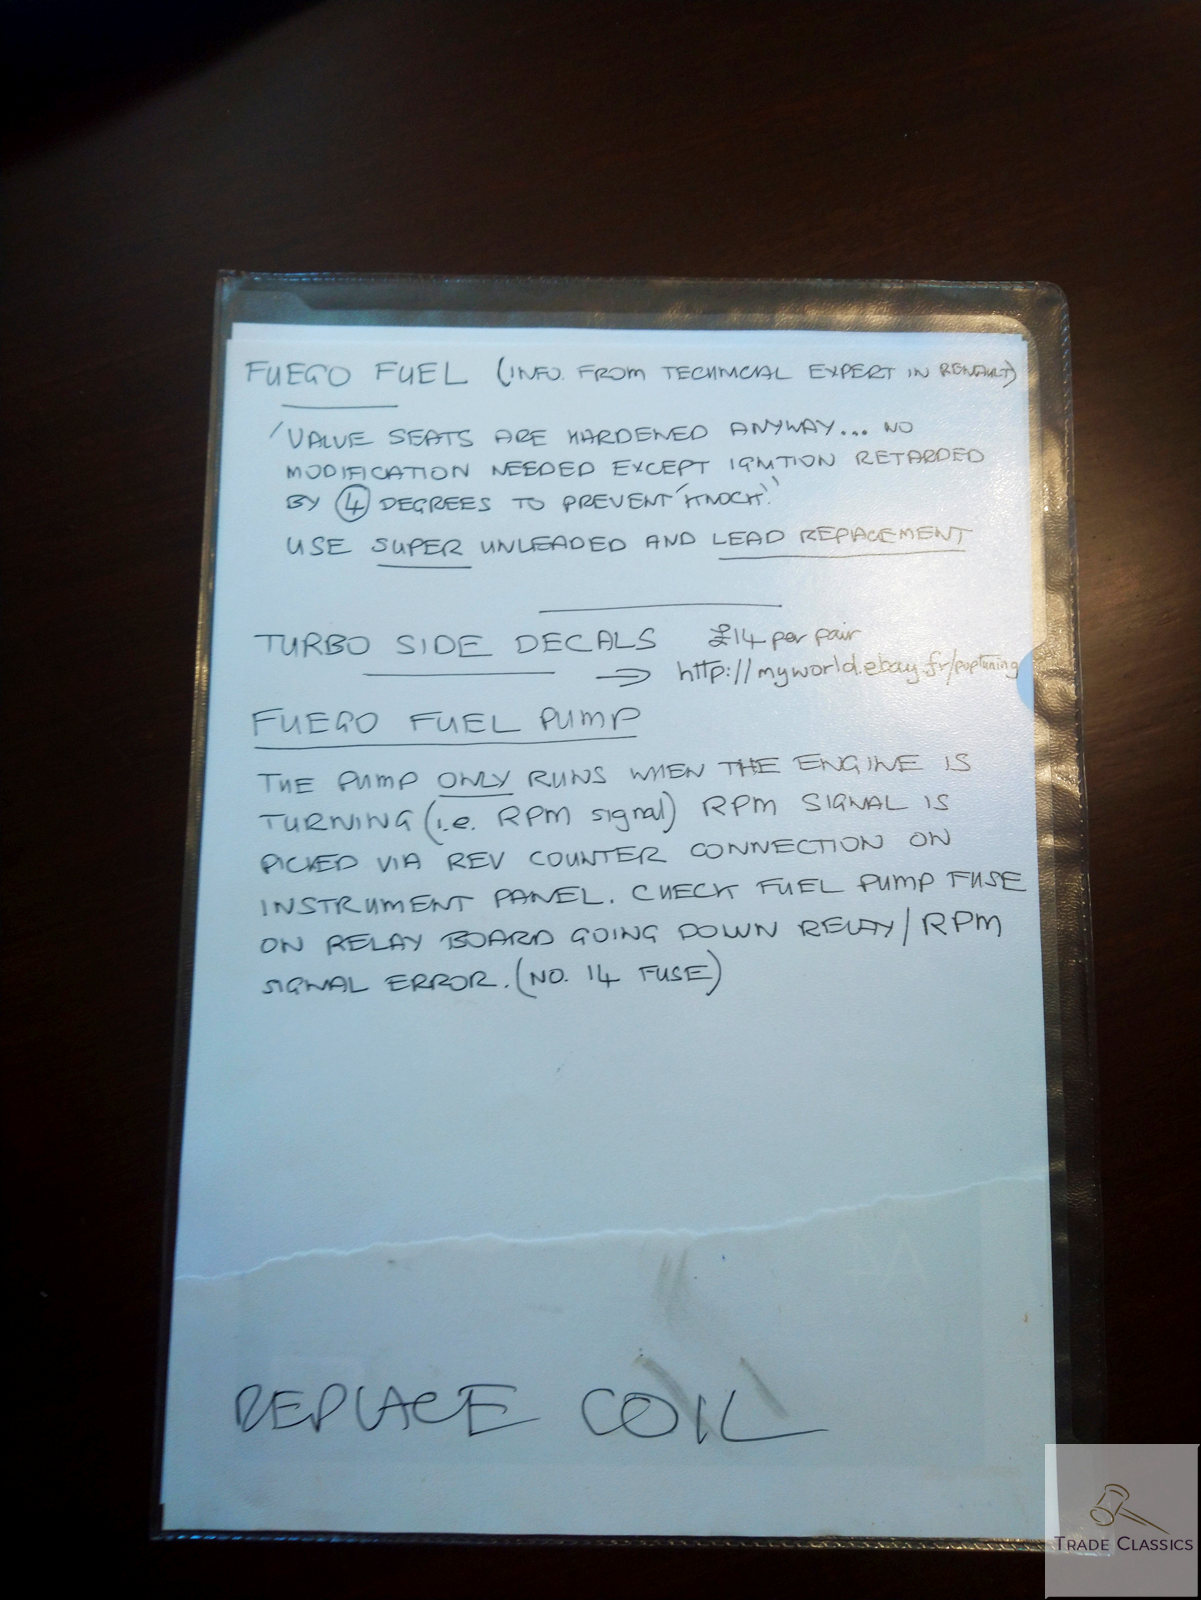 FUEGO FUEL (INFO. FROM TECHNICAL EXPERT IN RENAULT)
'VALVE SEATS ARE HARDENED ANYWAY... NO
MODIFICATION NEEDED EXCEPT IGNITION RETARDED
BY 4 DEGREES TO PREVENT 'KNOCK'.'
USE SUPER UNLEADED AND LEAD REPLACEMENT
TURBO SIDE DECALS £14 per pair
→ http://myworld.ebay.fr/puptuning
FUEGO FUEL PUMP
THE PUMP ONLY RUNS WHEN THE ENGINE IS
TURNING (i.e. RPM signal) RPM SIGNAL IS
PICKED VIA REV COUNTER CONNECTION ON
INSTRUMENT PANEL. CHECK FUEL PUMP FUSE
ON RELAY BOARD GOING DOWN RELAY/RPM
SIGNAL ERROR. (NO. 14 FUSE)
REPLACE COIL
TRADE CLASSICS